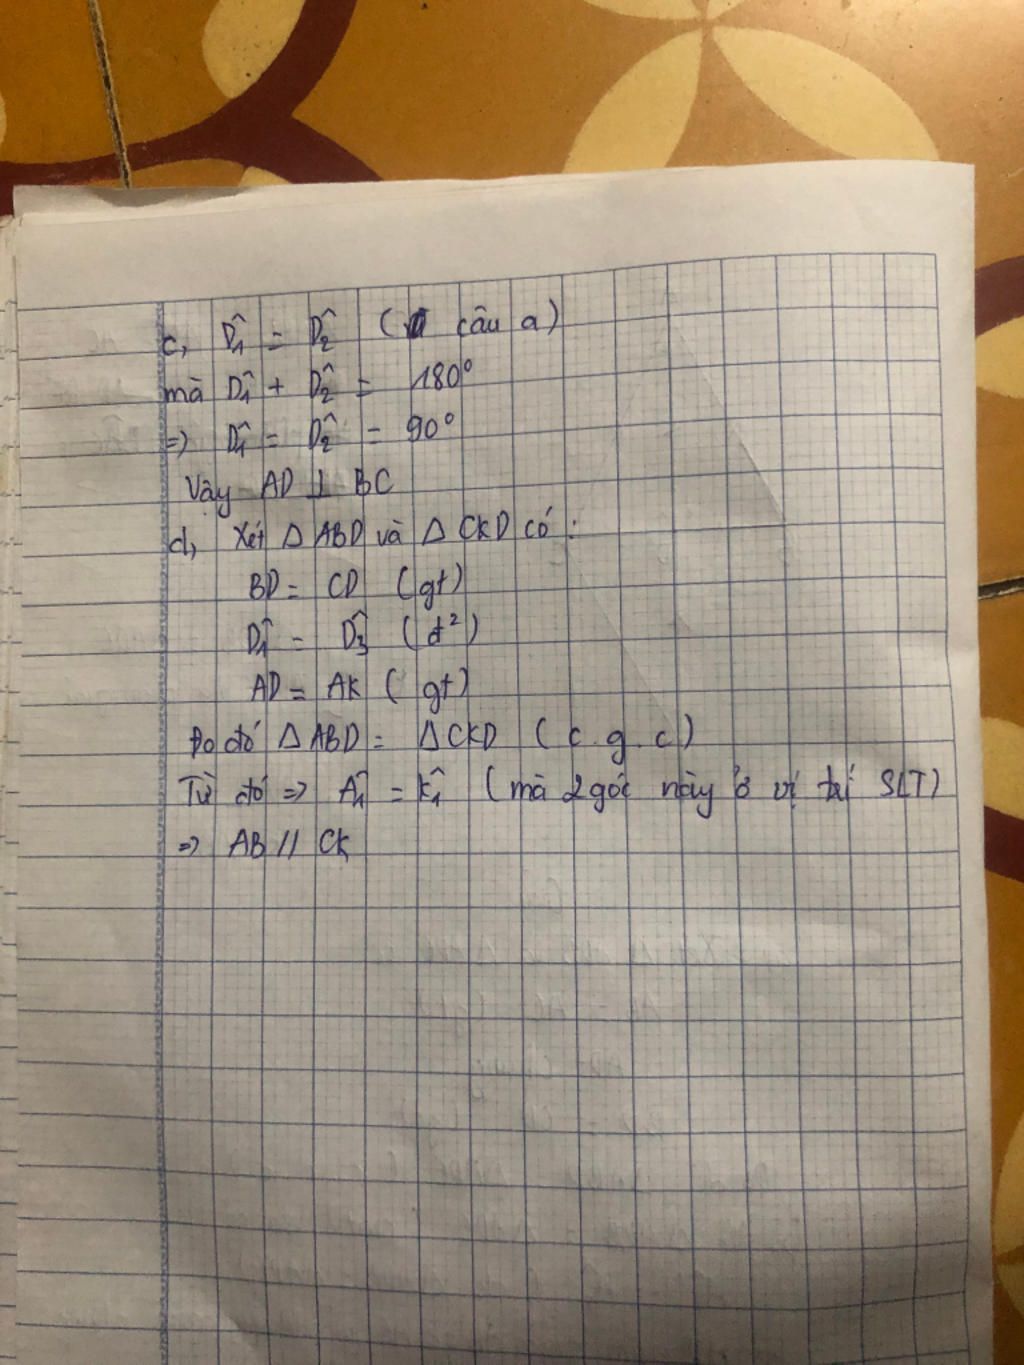 c, D̂₁ = D̂₂ ( câu a)
mà D̂₁ + D̂₂ = 180⁰
=> D̂₁ = D̂₂ = 90⁰
Vậy AD ⊥ BC
d, Xét Δ ABD và Δ CKD có :
BD = CD (gt)
D̂₁ = D̂₃ (đ²)
AD = AK ( gt)
Do đó Δ ABD = Δ CKD ( c . g . c )
Từ đó => Â₁ = K̂₁ (mà 2 góc này ở vị trí SLT)
=> AB // CK